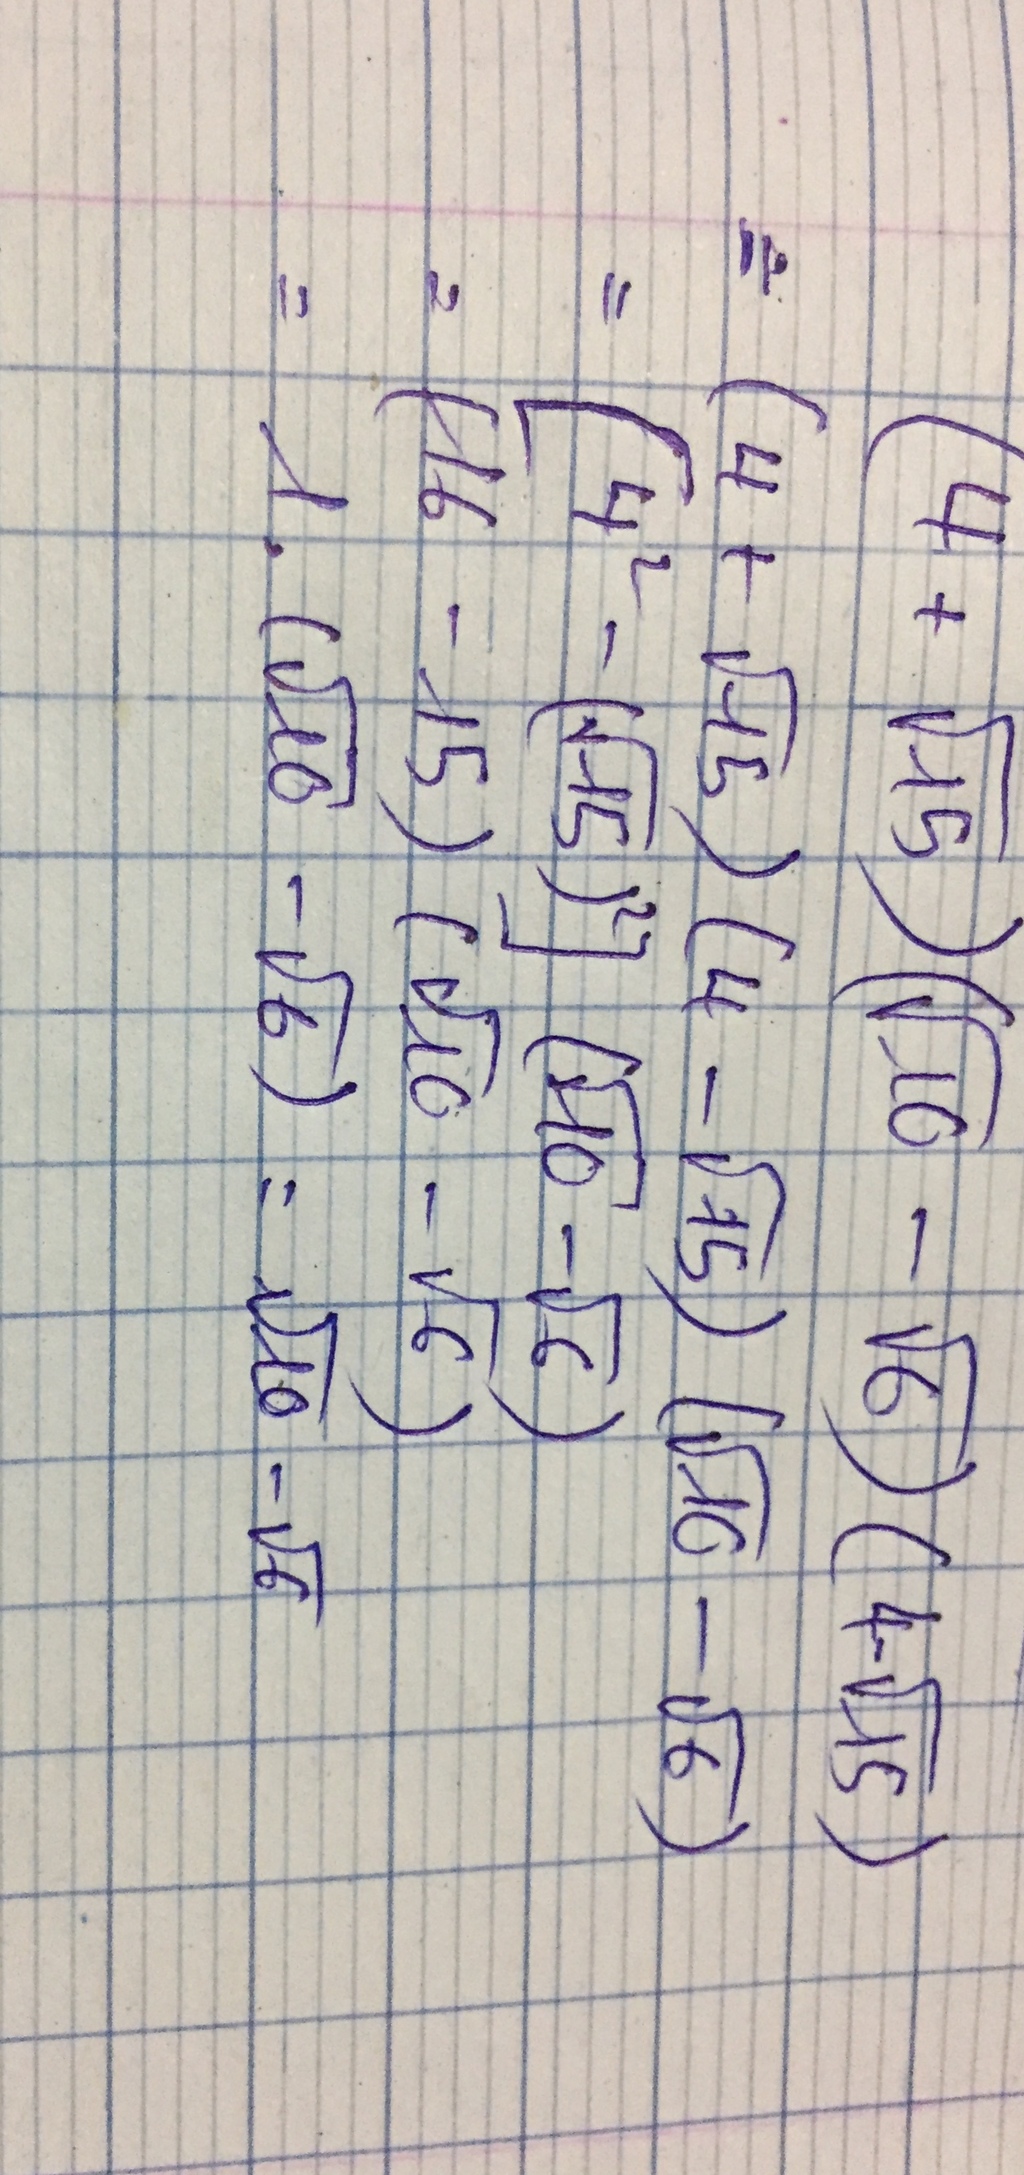 (4 + √15)(√10 - √6)(4-√15)
= (4 + √15)(4 - √15)(√10 - √6)
= [4² - (√15)²](√10 - √6)
= (16 - 15)(√10 - √6)
= 1.(√10 - √6) = √10 - √6